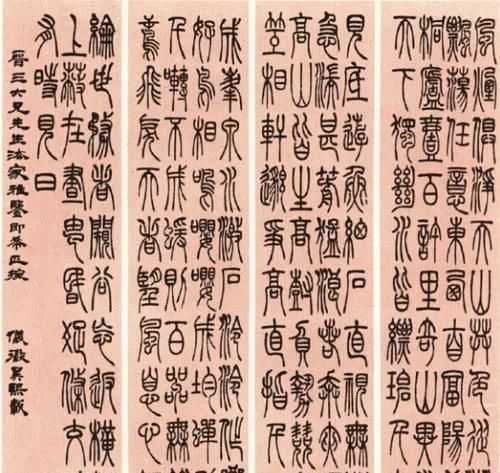 風煙俱淨天山共色從
飄蕩任意東西自富陽
桐廬壹百許里奇山異
天下獨絕水皆縹碧千
見底遊魚細石直視無
急湍甚箭猛浪若奔夾
高山皆生高樹負勢競
互相軒邈爭高直指千
成峯泉水激石泠泠作
好鳥相鳴嚶嚶成均
千囀不窮猨則百叫無
鳶飛戾天者望峯息心
綸世務者闚谷忘返橫
上蔽在晝猶昏疏條交
有時見日
晉三大兄先生法家雅鑒即希正捥
儀徵吳熙載